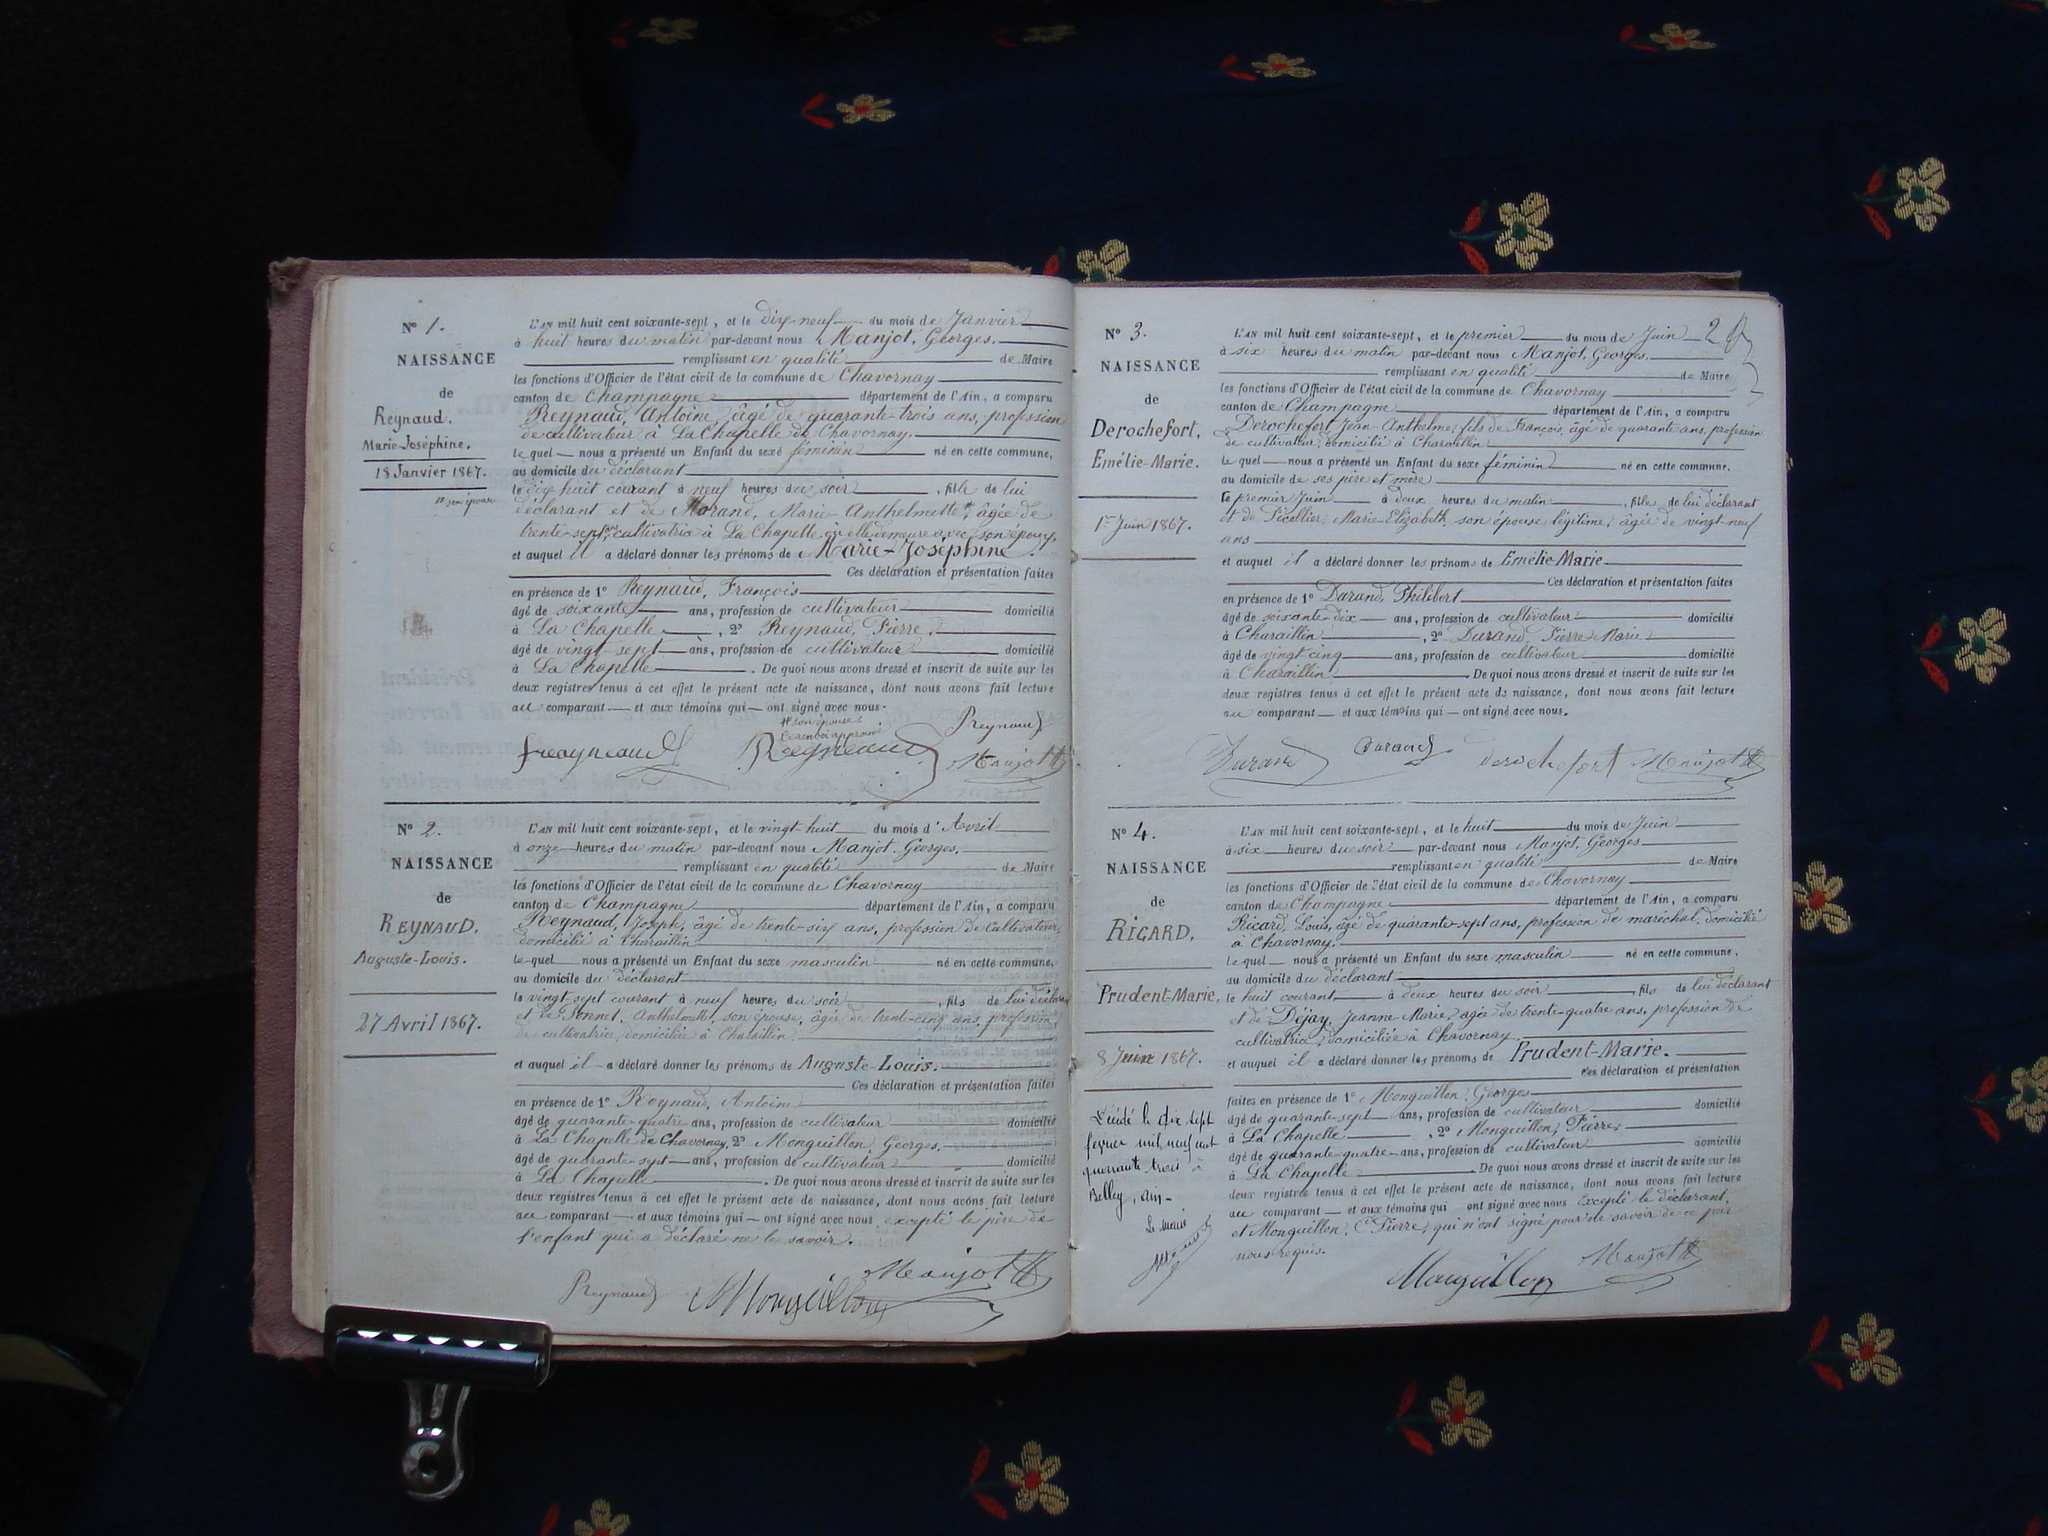 N° 1.
NAISSANCE
de
Reynaud.
Marie-Joséphine.
18 Janvier 1867.
son épouse
L'AN mil huit cent soixante-sept, et le dix-neuf du mois de Janvier
à huit heures du matin par-devant nous Manjot, Georges.
remplissant en qualité de Maire
les fonctions d'Officier de l'état civil de la commune de Chavornay
canton de Champagne département de l'Ain, a comparu
Reynaud, Antoine, âgé de quarante-trois ans, profession
de cultivateur à La Chapelle de Chavornay.
le quel nous a présenté un Enfant du sexe féminin né en cette commune,
au domicile du déclarant
le dix-huit courant à neuf heures du soir, fille de lui
déclarant et de Morand, Marie-Anthelmette, âgée de
trente-sept ans cultivatrice à La Chapelle où elle demeure avec son époux,
et auquel il a déclaré donner les prénoms de Marie-Joséphine.
Ces déclaration et présentation faites
en présence de 1° Reynaud, François
âgé de soixante ans, profession de cultivateur domicilié
à La Chapelle, 2° Reynaud, Pierre,
âgé de vingt-sept ans, profession de cultivateur domicilié
à La Chapelle. De quoi nous avons dressé et inscrit de suite sur les
deux registres tenus à cet effet le présent acte de naissance, dont nous avons fait lecture
au comparant et aux témoins qui ont signé avec nous.
son épouse
renvoi approuvé
Reynaud
Manjot
N° 2.
NAISSANCE
de
REYNAUD.
Auguste-Louis.
27 Avril 1867.
L'AN mil huit cent soixante-sept, et le vingt-huit du mois d'Avril
à onze heures du matin par-devant nous Manjot, Georges,
remplissant en qualité de Maire
les fonctions d'Officier de l'état civil de la commune de Chavornay
canton de Champagne département de l'Ain, a comparu
Reynaud, Joseph, âgé de trente-six ans, profession de Cultivateur,
domicilié à Charaillin
le quel nous a présenté un Enfant du sexe masculin né en cette commune,
au domicile du déclarant
le vingt-sept courant à neuf heures du soir, fils de lui déclarant
et de Anthelmette, son épouse, âgée de trente-cinq ans, profession
de cultivatrice, domiciliée à Charaillin.
et auquel il a déclaré donner les prénoms de Auguste-Louis.
Ces déclaration et présentation faites
en présence de 1° Reynaud, Antoine
âgé de quarante-quatre ans, profession de cultivateur domicilié
à La Chapelle de Chavornay, 2° Monguillon, Georges.
âgé de quarante-sept ans, profession de cultivateur domicilié
à La Chapelle. De quoi nous avons dressé et inscrit de suite sur les
deux registres tenus à cet effet le présent acte de naissance, dont nous avons fait lecture
au comparant et aux témoins qui ont signé avec nous, excepté le père de
l'enfant qui a déclaré ne le savoir.
Reynaud Monguillon Manjot
2
N° 3.
NAISSANCE
de
Derochefort,
Emélie-Marie.
1er Juin 1867.
L'AN mil huit cent soixante-sept, et le premier du mois de Juin
à six heures du matin par-devant nous Manjot, Georges.
remplissant en qualité de Maire
les fonctions d'Officier de l'état civil de la commune de Chavornay
canton de Champagne département de l'Ain, a comparu
Derochefort Jean-Anthelme, fils de François, âgé de quarante ans, profession
de cultivateur, domicilié à Charaillin
le quel nous a présenté un Enfant du sexe féminin né en cette commune,
au domicile de ses père et mère
le premier Juin à deux heures du matin, fille de lui déclarant
et de Marie-Elizabeth, son épouse légitime, âgée de vingt-neuf
ans
et auquel il a déclaré donner les prénoms de Emélie-Marie
Ces déclaration et présentation faites
en présence de 1° Durand, Philibert
âgé de soixante-dix ans, profession de cultivateur domicilié
à Charaillin, 2° Durand, Pierre-Marie
âgé de vingt-cinq ans, profession de cultivateur domicilié
à Charaillin. De quoi nous avons dressé et inscrit de suite sur les
deux registres tenus à cet effet le présent acte de naissance, dont nous avons fait lecture
au comparant et aux témoins qui ont signé avec nous.
Durand Durand derochefort Manjot
N° 4.
NAISSANCE
de
RICARD,
Prudent-Marie,
8 Juin 1867.
Décédé le dix sept
février mil neuf cent
quarante trois à
Belley, Ain
Le Maire
L'AN mil huit cent soixante-sept, et le huit du mois de Juin
à six heures du soir par-devant nous Manjot, Georges
remplissant en qualité de Maire
les fonctions d'Officier de l'état civil de la commune de Chavornay
canton de Champagne département de l'Ain, a comparu
Ricard, Louis, âgé de quarante-sept ans, profession de maréchal, domicilié
à Chavornay.
le quel nous a présenté un Enfant du sexe masculin né en cette commune,
au domicile du déclarant
le huit courant à deux heures du soir, fils de lui déclarant
et de Déjay, Jeanne-Marie, âgée de trente-quatre ans, profession de
cultivatrice, domiciliée à Chavornay.
et auquel il a déclaré donner les prénoms de Prudent-Marie.
Ces déclaration et présentation
faites en présence de 1° Monguillon, Georges
âgé de quarante-sept ans, profession de cultivateur domicilié
à La Chapelle, 2° Monguillon, Pierre,
âgé de quarante-quatre ans, profession de cultivateur domicilié
à La Chapelle. De quoi nous avons dressé et inscrit de suite sur les
deux registres tenus à cet effet le présent acte de naissance, dont nous avons fait lecture
au comparant et aux témoins qui ont signé avec nous excepté le déclarant,
et Monguillon, Pierre, qui n'ont signé pour ne savoir de ce par
nous requis.
Monguillon Manjot